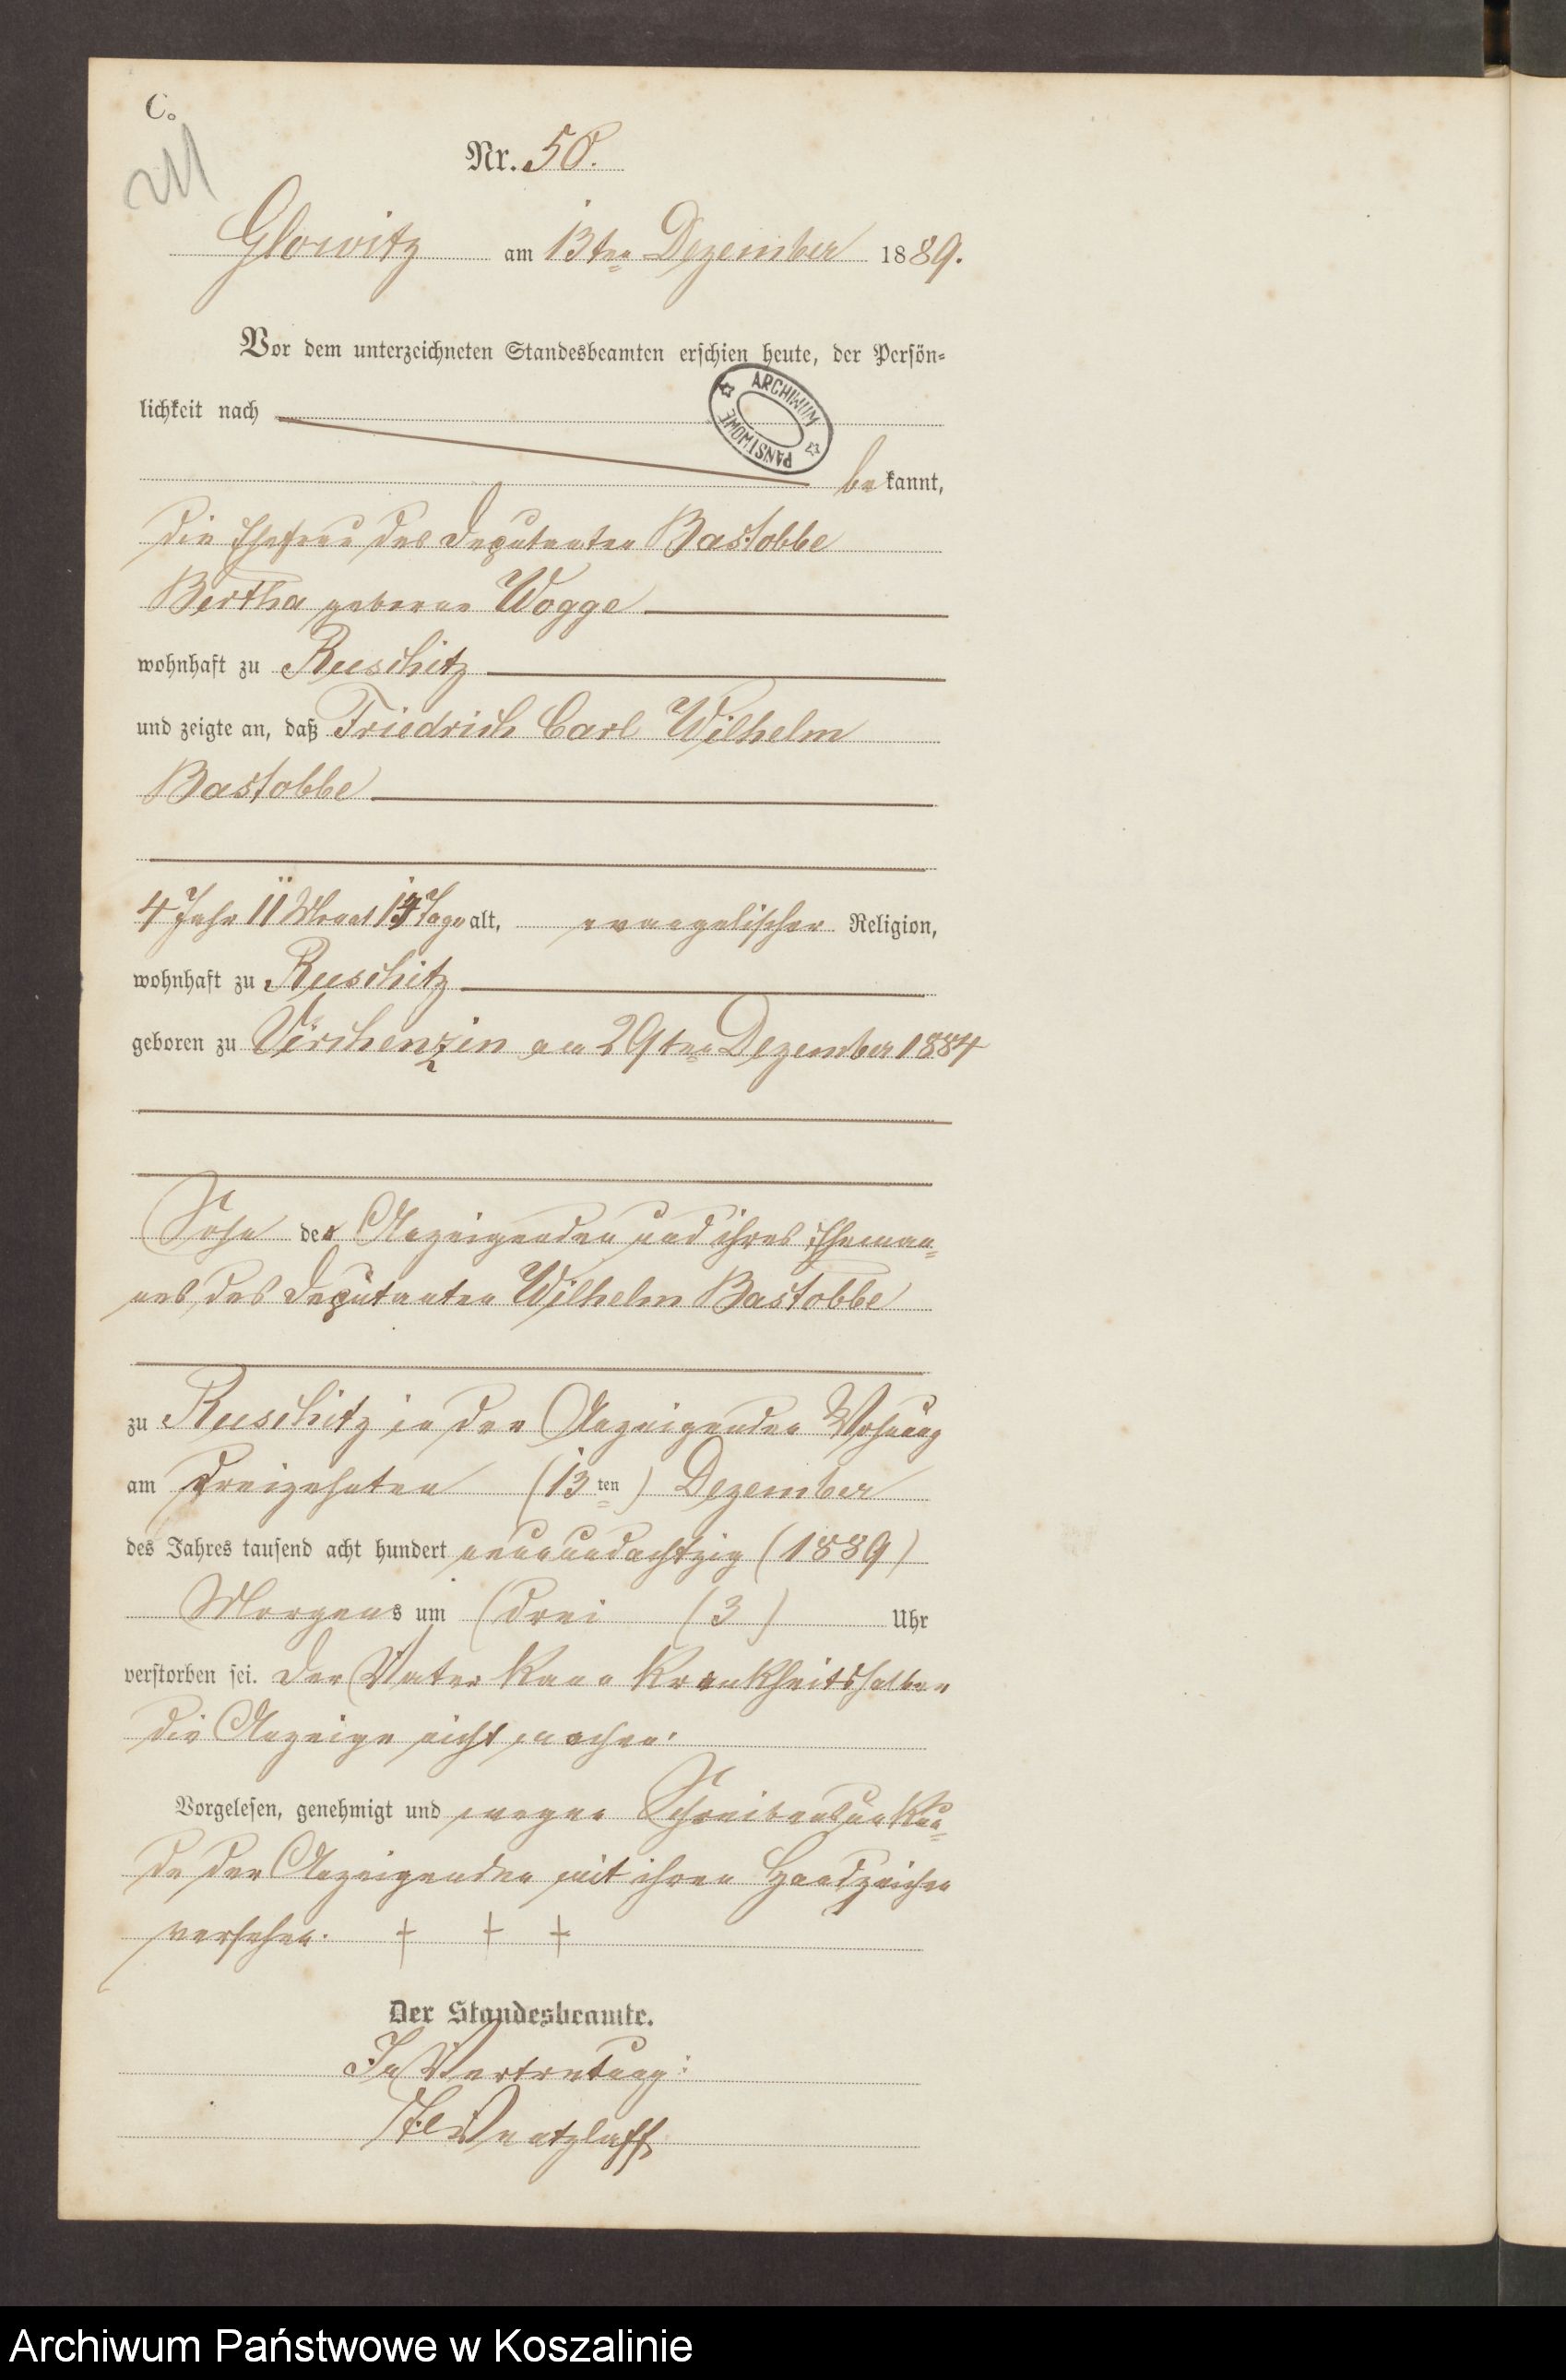 C.
Nr. 50.
Glowitz am 13ten Dezember 1889.
Vor dem unterzeichneten Standesbeamten erschien heute, der Persön-
lichkeit nach
ARCHIWUM PAŃSTWOWE
bekannt,
die Ehefrau des Deputanten Bastobbe
Bertha geborne Wogge
wohnhaft zu Ruschitz
und zeigte an, daß Friedrich Carl Wilhelm
Bastobbe
4 Jahr 11 Monat 14 Tage alt, evangelischer Religion,
wohnhaft zu Ruschitz
geboren zu Virchenzin am 29ten Dezember 1884
Sohn der Anzeigenden und ihres Eheman-
nes, des Deputanten Wilhelm Bastobbe
zu Ruschitz in der Anzeigenden Wohnung
am dreizehnten (13ten) Dezember
des Jahres tausend acht hundert neunundachtzig (1889)
Morgens um drei (3) Uhr
verstorben sei. Der Vater kann krankheitshalber
die Anzeige nicht machen.
Vorgelesen, genehmigt und wegen Schreibensunkun-
de der Anzeigenden mit ihren Handzeichen
versehen. + + +
Der Standesbeamte.
In Vertretung:
Wentzlaff
Archiwum Państwowe w Koszalinie